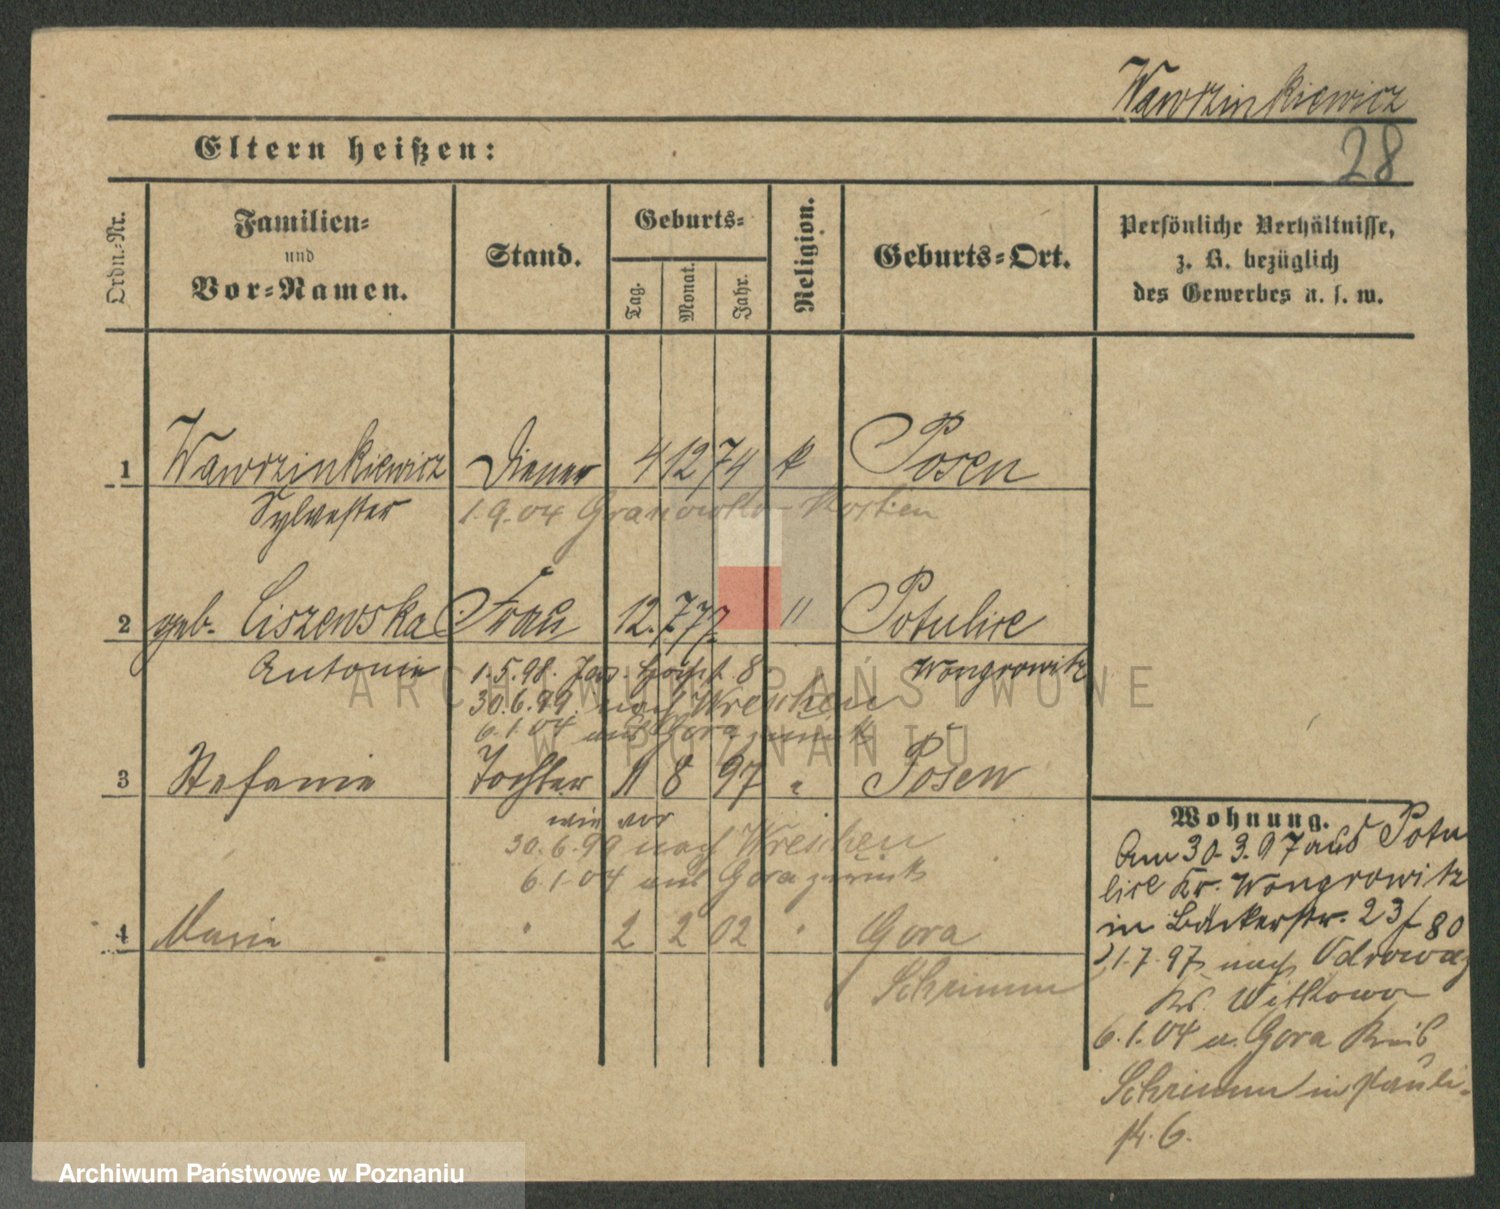 Wawrzinkiewicz
28
Eltern heißen:
Ordn.-Nr.
Familien-
und
Vor-Namen.
Stand.
Geburts-
Tag.
Monat.
Jahr.
Religion.
Geburts-Ort.
Persönliche Verhältnisse,
z. B. bezüglich
des Gewerbes u. s. w.
1 Wawrzinkiewicz Diener 4 12 74 k Posen
Sylvester 1.9.04 Granowko Kosten
2 geb. Liszewska Frau 12. 7. 77. " Potulice
Antonie 1.5.98. 8. Wongrowitz
30.6.99. nach Wreschen
6.1.04 aus Gora zurück
3 Stefanie Tochter 11 8 97 " Posen
wie vor
30.6.99 nach Wreschen
6.1.04 aus Gora zurück
4 Marie " 2 2 02 " Gora
Schrimm
Wohnung.
Am 30.3.97 aus Potu
lice Kr. Wongrowitz
in Bäckerstr. 23 f 80
21.7.97 nach Odrowaz
Kr. Witkowo
6.1.04 a. Gora Kreis
Schrimm in Pauli-
str. 6.
ARCHIWUM PAŃSTWOWE
W POZNANIU
Archiwum Państwowe w Poznaniu